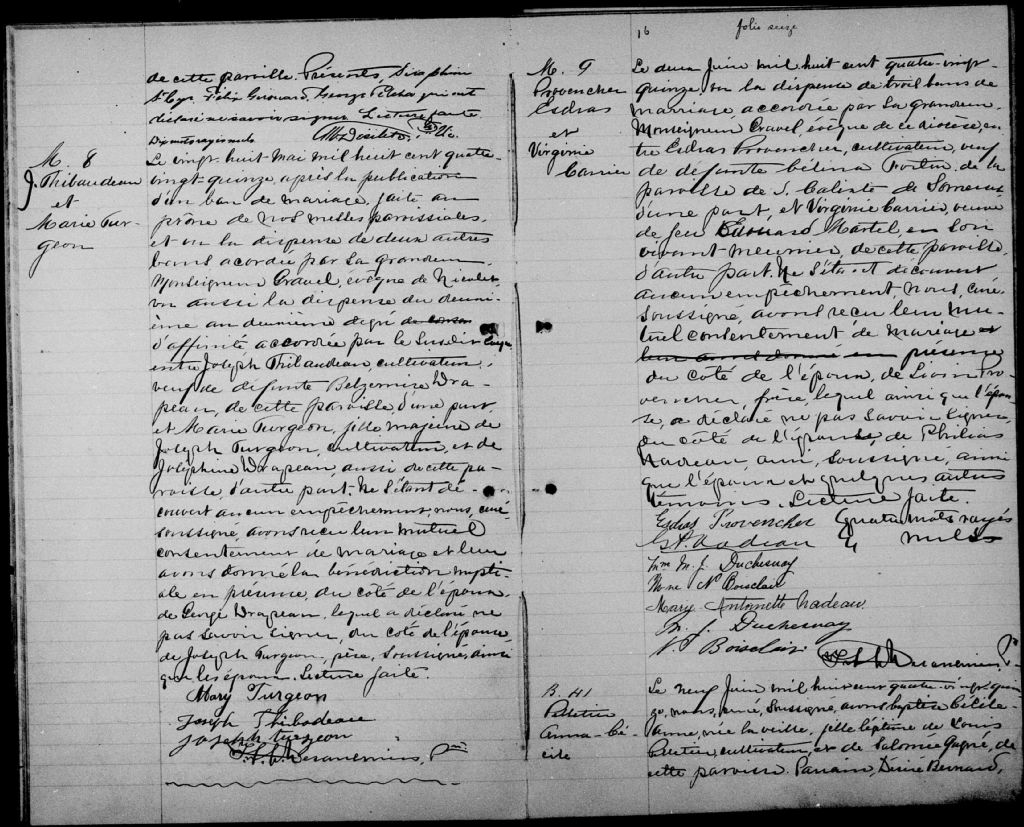 de cette paroisse. Présents, Séraphin
St Cyr, Félix Girouard, George Pelletier qui ont
déclaré ne savoir signer. Lecture faite
Dix mots rayés nuls
M. 8
J. Thibaudeau
et
Marie Tur-
geon
Le vingt-huit mai mil huit cent quatre-
vingt-quinze, après la publication
d'un ban de mariage, faite au
prône de nos messes paroissiales,
et vu la dispense de deux autres
bans accordée par Sa Grandeur
Monseigneur Gravel, évêque de Nicolet,
vu aussi la dispense du deuxi-
ème au deuxième degré
d'affinité accordée par le susdit évêque
entre Joseph Thibaudeau, cultivateur,
veuf de défunte Belzemire Dra-
peau, de cette paroisse d'une part,
et Marie Turgeon, fille majeure de
Joseph Turgeon, cultivateur, et de
Joséphine Drapeau, aussi de cette pa-
roisse, d'autre part. Ne s'étant dé-
couvert aucun empêchement, nous, curé
soussigné avons reçu leur mutuel
consentement de mariage et leur
avons donné la bénédiction nupti-
ale en présence, du côté de l'époux,
de George Drapeau, lequel a déclaré ne
pas savoir signer, du côté de l'épouse,
de Joseph Turgeon, père, soussigné, ainsi
que les époux. Lecture faite.
Mary Turgeon
Joseph Thibodeau
Joseph turgeon
16
folio seize
M. 9
Provencher
Esdras
et
Virginie
Carrier
Le deux juin mil huit cent quatre-vingt-
quinze, vu la dispense de trois bans de
mariage, accordée par Sa Grandeur
Monseigneur Gravel, évêque de ce diocèse, en-
tre Esdras Provencher, cultivateur, veuf
de défunte Célina Fortier de la
paroisse de S. Calixte de Somerset
d'une part, et Virginie Carrier, veuve
de feu Edouard Martel, en son
vivant meunier, de cette paroisse,
d'autre part. Ne s'étant découvert
aucun empêchement, nous, curé
soussigné, avons reçu leur mu-
tuel consentement de mariage et
leur avons donné en présence
du côté de l'époux, de Pro-
vencher, frère, lequel ainsi que l'épou-
se, a déclaré ne pas savoir signer,
du côté de l'épouse, de Philias
Nadeau, ami, soussigné, ainsi
que l'époux et quelques autres
témoins. Lecture faite.
Esdras Provencher Quatre mots rayés
Nadeau nuls
Mme M. J. Duchesnay
Mme N. Boisclair
Mary Antonnette Nadeau.
M. J. Duchesnay
N. Boisclair
B. 41
Pelletier
Anna-Cé-
cile
Le neuf juin mil huit cent quatre-vingt-quin-
ze, nous, curé, soussigné, avons baptisé Cécile-
Anna, née la veille, fille légitime de Louis
Pelletier, cultivateur, et de Salomée Gagné, de
cette paroisse. Parrain, Désiré Bernard,